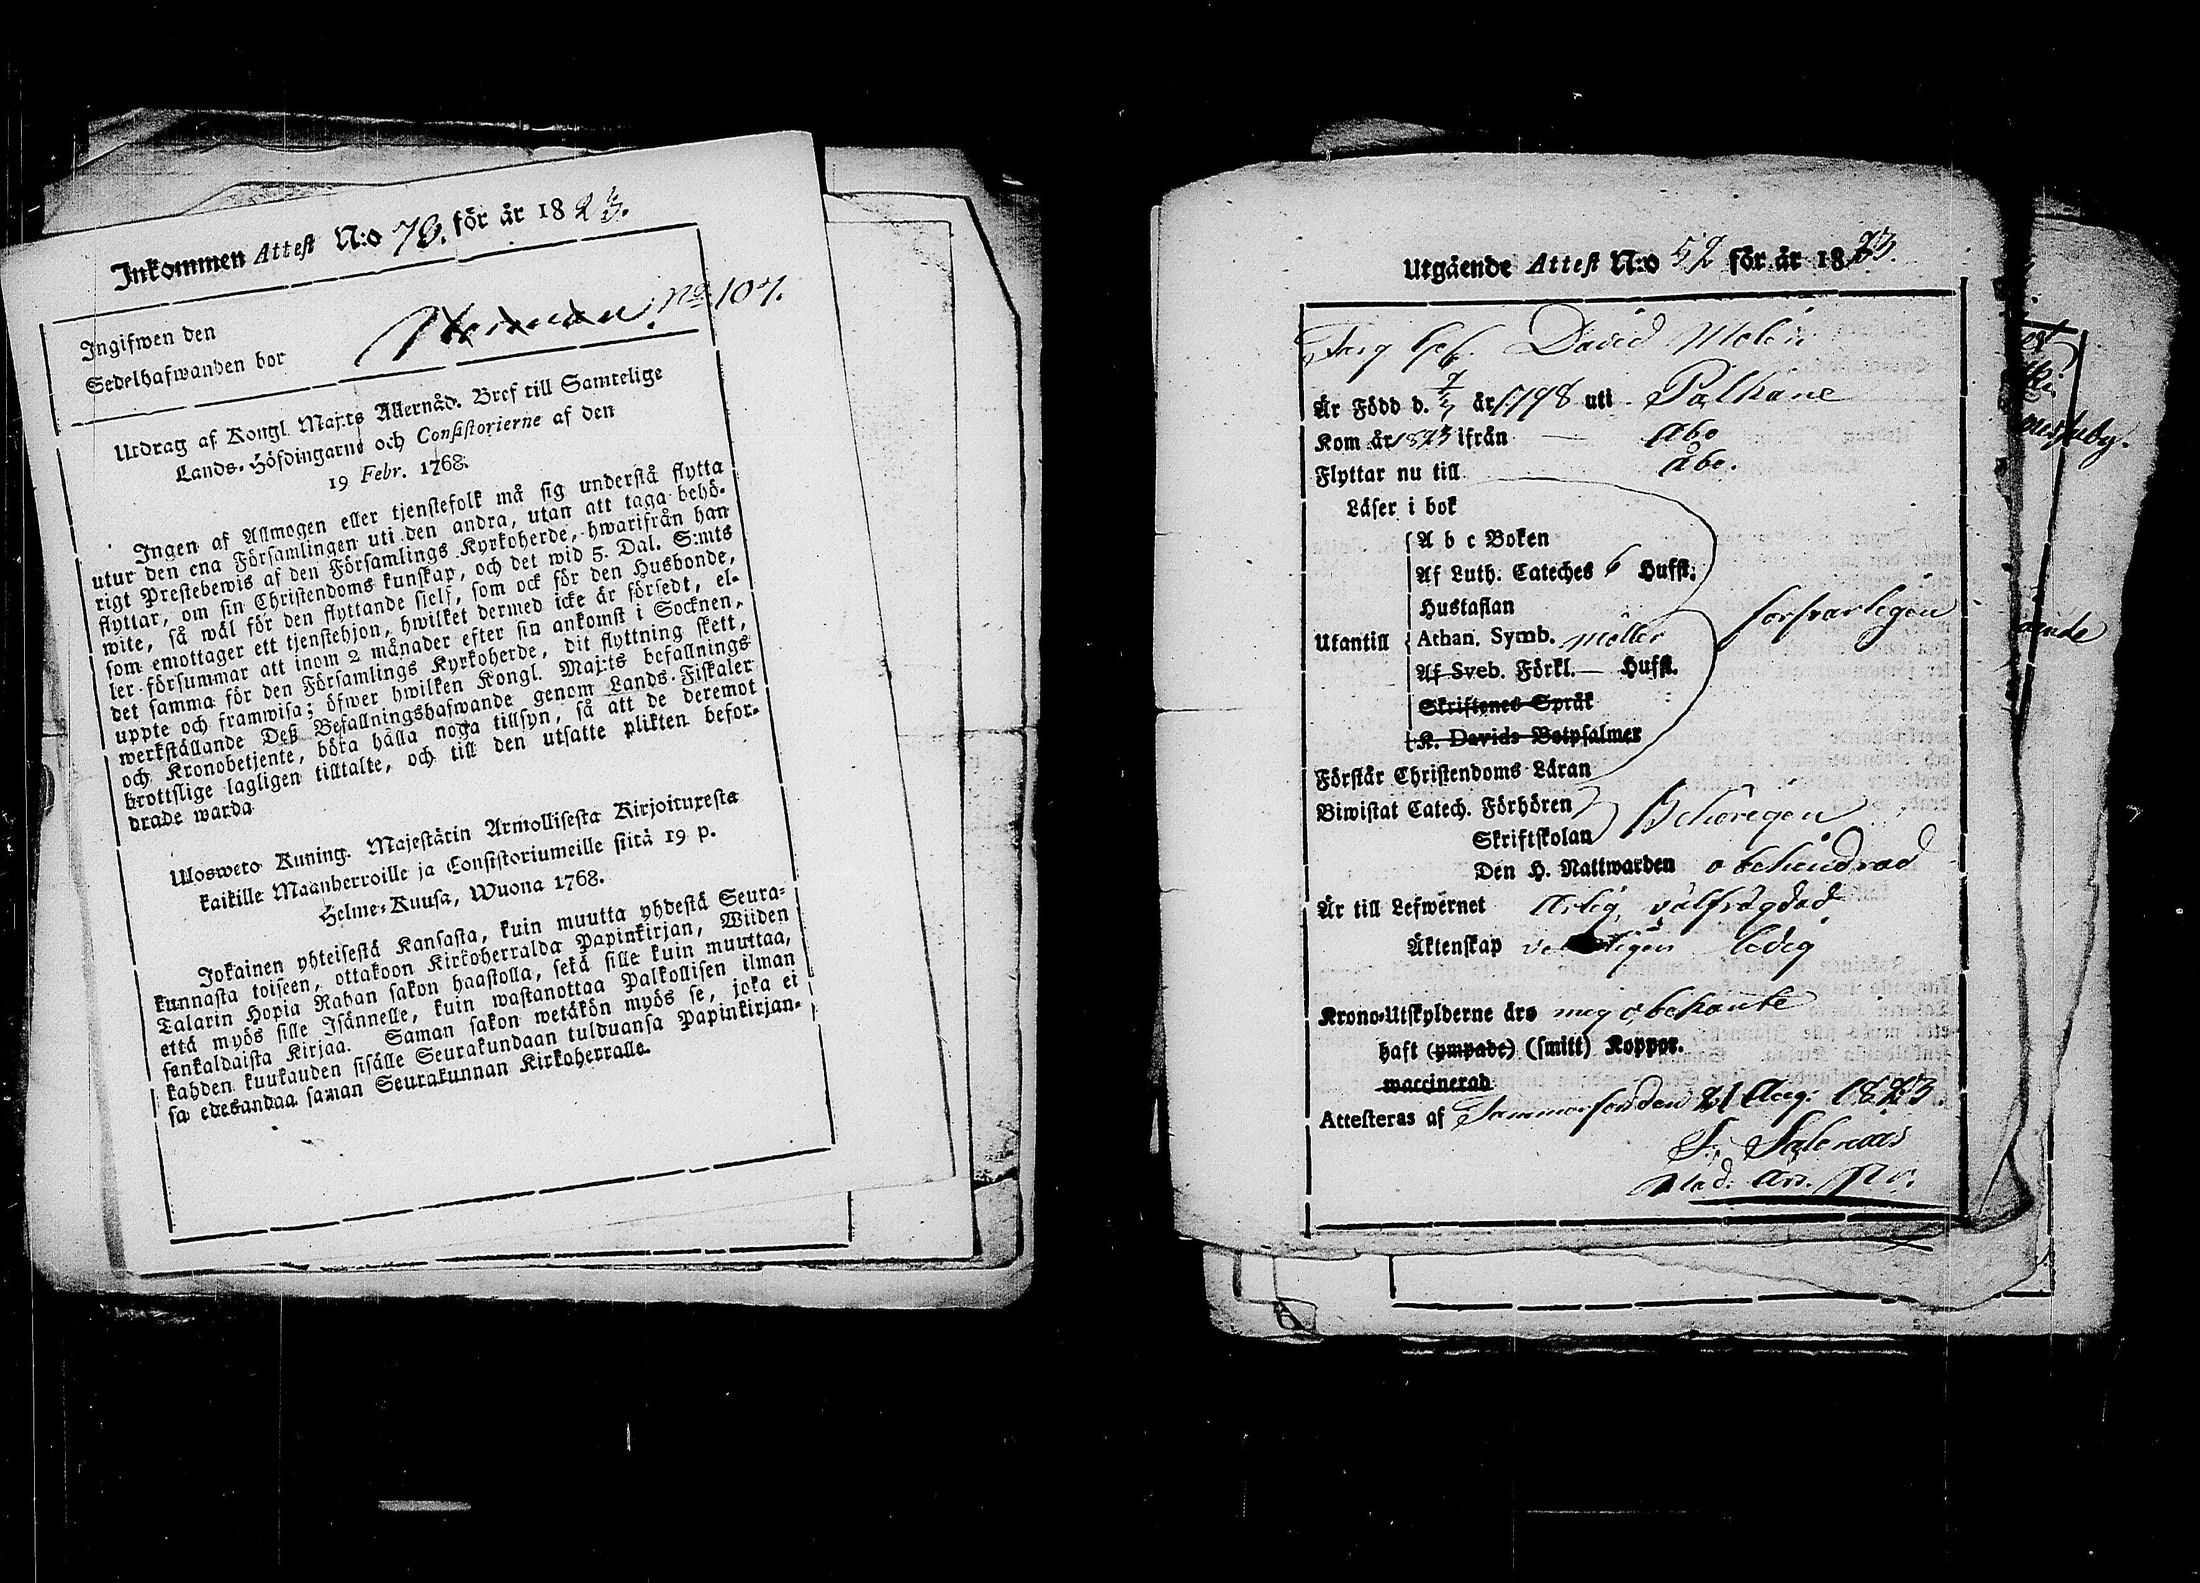 Inkommen Attest N:o 76. för år 1823.
Ingifwen den
Sedelhafwanden bor No 107.
Utdrag af Kongl. Maj:ts Allernåd. Bref till Samtelige
Lands-Höfdingarne och Consistorierne af den
19 Febr. 1768.
Ingen af Allmogen eller tjenstefolk må sig understå flytta
utur den ena Församlingen uti den andra, utan att taga behö-
rigt Prestebewis af den Församlings Kyrkoherde, hwarifrån han
flyttar, om sin Christendoms kunskap, och det wid 5. Dal. S:mts
wite, så wäl för den flyttande sielf, som ock för den Husbonde,
som emottager ett tjenstehjon, hwilket dermed icke är försedt, el-
ler försummar att inom 2 månader efter sin ankomst i Socknen,
det samma för den Församlings Kyrkoherde, dit flyttning skett,
uppte och framwisa; öfwer hwilken Kongl. Maj:ts befallnings
werkställande Deß Befallningshafwande genom Lands-Fiskaler
och Kronobetjente, böra hålla noga tillsyn, så att de deremot
brottslige lagligen tilltalte, och till den utsatte plikten befor-
drade warda
Ulosweto Kuning. Majestätin Armollisesta Kirjoituxesta
kaikille Maanherroille ja Consistoriumeille siitä 19 p.
Helme-Kuusa, Wuona 1768.
Jokainen yhteisestä Kansasta, kuin muutta yhdestä Seura-
kunnasta toiseen, ottakoon Kirkoherralda Papinkirjan, Wiiden
Talarin Hopia Rahan sakon haastolla, sekä sille kuin muuttaa,
että myös sille Isännelle, kuin wastanottaa Palkollisen ilman
senkaldaista Kirjaa. Saman sakon wetäkön myös se, joka ei
kahden kuukauden sisälle Seurakundaan tulduansa Papinkirjan-
sa edesandaa saman Seurakunnan Kirkoherralle.
Utgående Attest N:o 52 för år 1823.
Färg Ges. David Molin
Är Född d. 7/7 år 1798 uti Pälkäne
Kom år 1823 ifrån — Åbo
Flyttar nu till Åbo.
Läser i bok
A b c Boken
Af Luth. Cateches 6 Hufst.
Hustaflan
Utantill Athan. Symb. försvarligen
Af Sveb. Förkl. — Hufst.
Skriftenes Språk
K. Davids Botpsalmer
Förstår Christendoms Läran
Biwistat Catech. Förhören
Skriftskolan Behörigen
Den H. Nattwarden obehindrad
Är till Lefwernet Ärlig, välfrägdad
Äktenskap ledig
Krono-Utskylderne äro mig obekante
haft (ympade) (smitt) Koppor.
waccinerad
Attesteras af Tammerfors den 21 Aug: 1823.